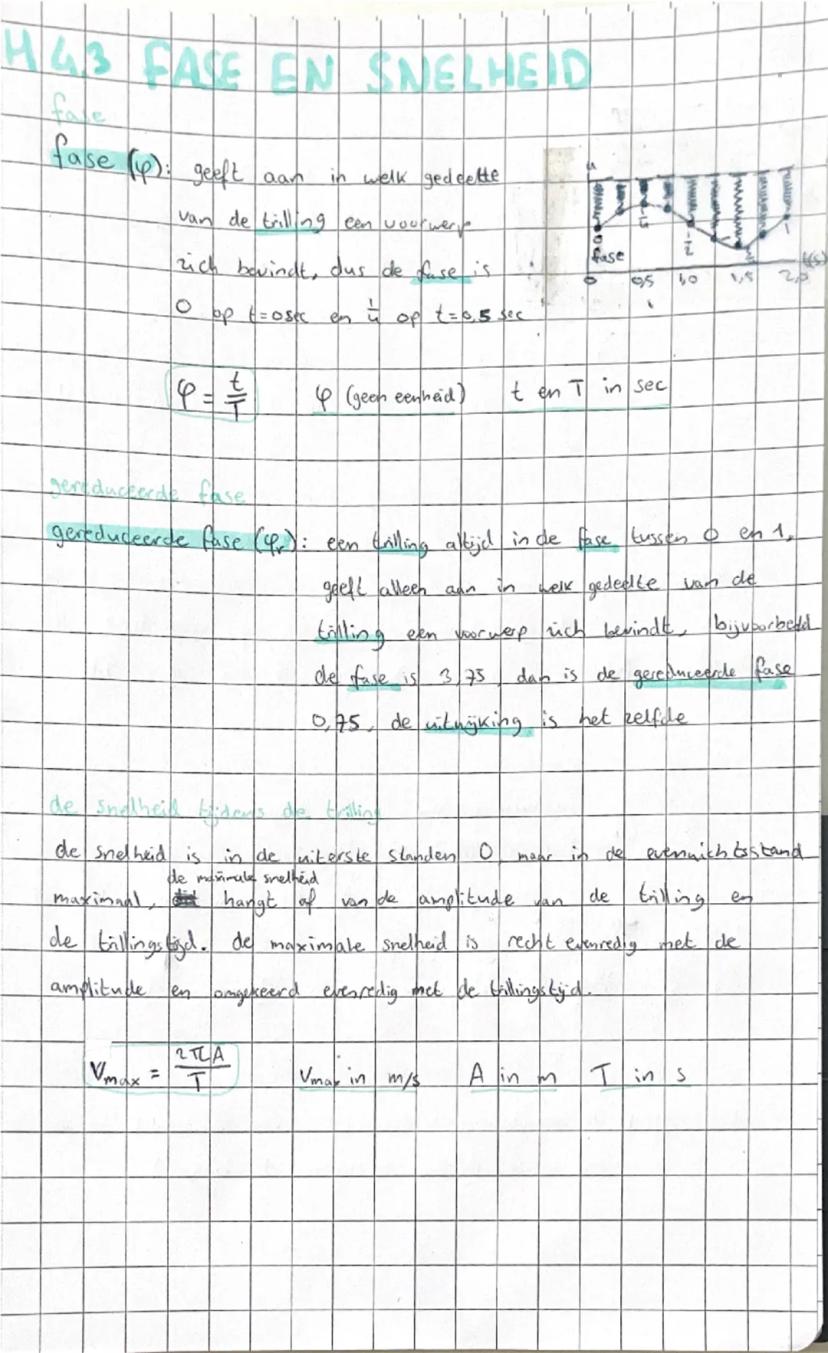 H 4.3 FASE EN SNELHEID
fase
fase (φ): geeft aan in welk gedeelte
van de trilling een voorwerp
zich bevindt, dus de fase is
0 op t=0sec en 1/4 op t=0,5 sec
u
0 1/4 1/2 1
fase
t(s)
0 0,5 1,0 1,5 2,0
φ = t/T φ (geen eenheid) t en T in sec
gereduceerde fase
gereduceerde fase (φr): een trilling altijd in de fase tussen 0 en 1,
geeft alleen aan in welk gedeelte van de
trilling een voorwerp zich bevindt, bijvoorbeeld
de fase is 3,75, dan is de gereduceerde fase
0,75, de uitwijking is het zelfde
de snelheid tijdens de trilling
de snelheid is in de uiterste standen 0 maar in de evenwichtsstand
de maximale snelheid
maximaal, hangt af van de amplitude van de trilling en
de trillingstijd. de maximale snelheid is recht evenredig met de
amplitude en omgekeerd evenredig met de trillingstijd.
Vmax = 2πA/T Vmax in m/s A in m T in s